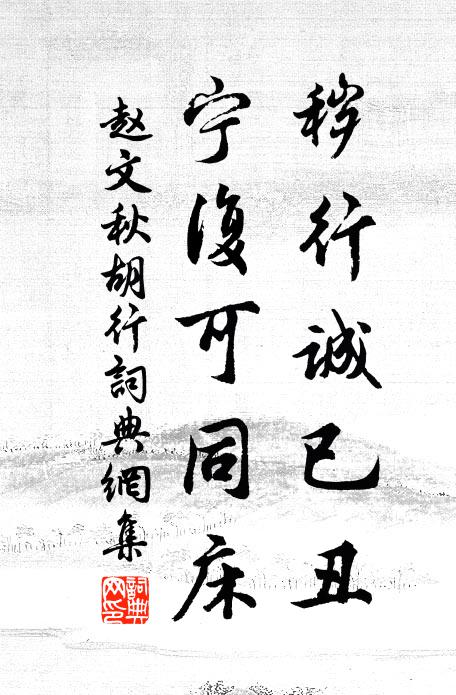 秽行诚已丑
宁复可同床
赵文秋胡行词典网集
词典网印